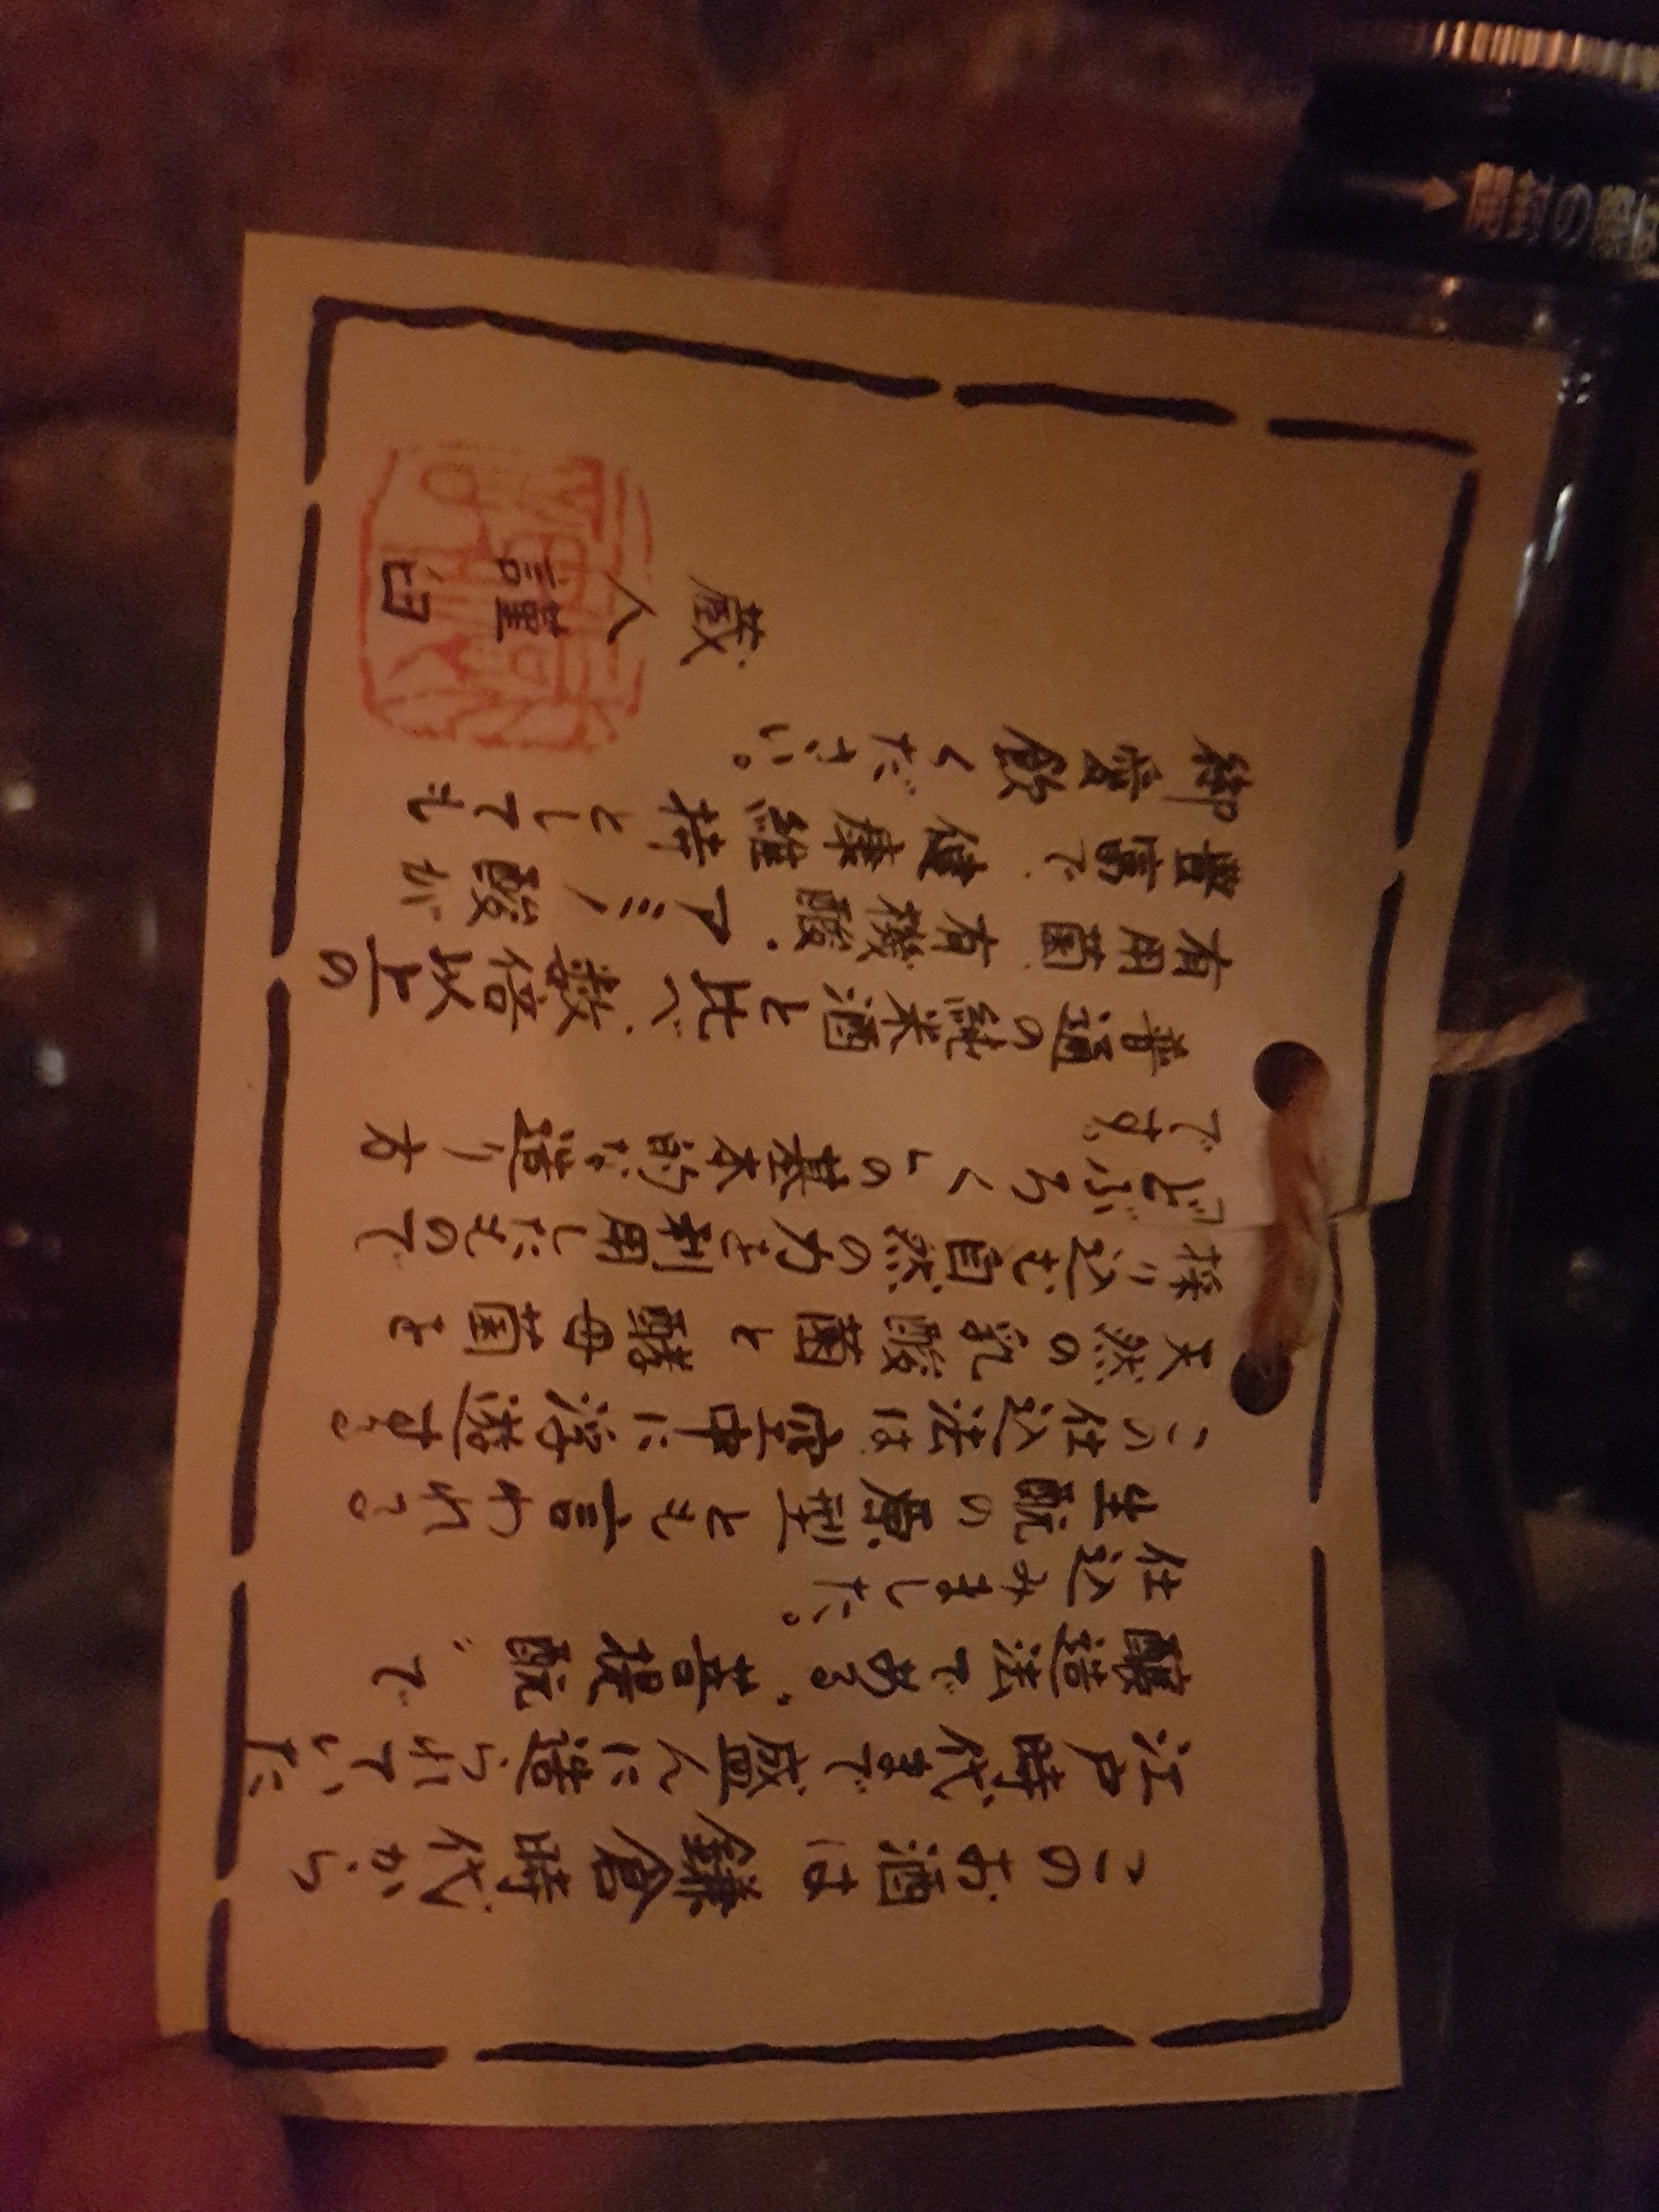 このお酒は鎌倉時代から
江戸時代まで盛んに造られていた
醸造法である"菩提酛"で
仕込みました。
生酛の原型とも言われる。
この仕込法は、空中に浮遊する。
天然の乳酸菌と酵母菌を
採り込む自然の力を利用したもので
「どぶろく」の基本的な造り方
です。
普通の純米酒と比べ、数倍以上の
有用菌、有機酸・アミノ酸が
豊富で、健康維持としても
御愛飲ください。
蔵人謹白
開封の際は